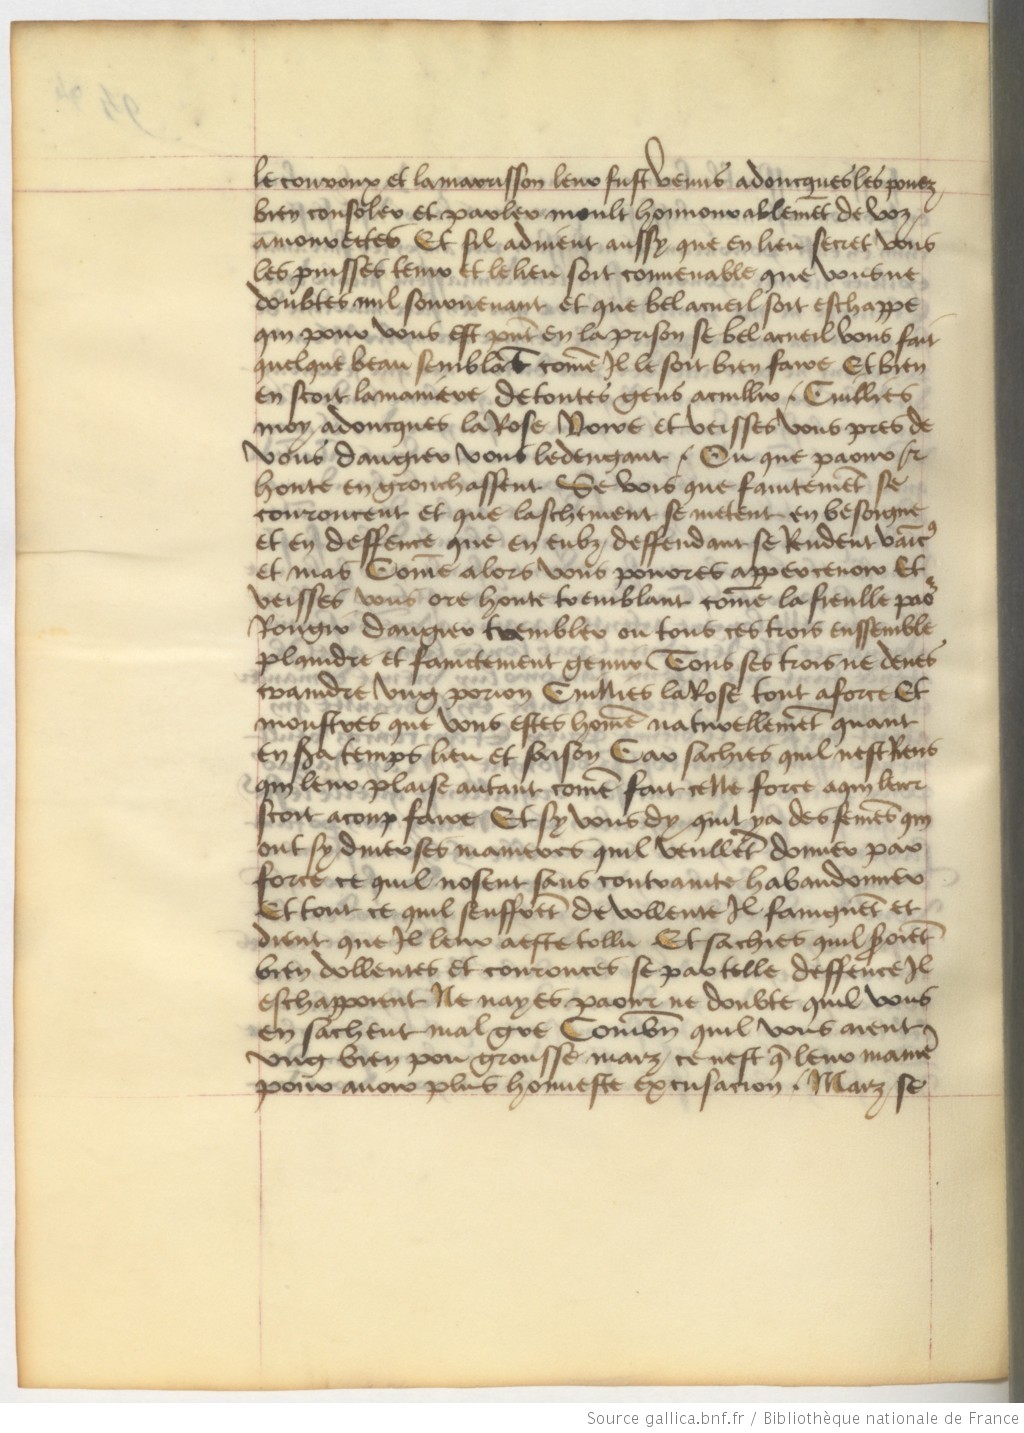 le courroux et la marrisson leur fust venus adoncques les pouez
bien consoler et parler moult honnourablemēt de voz
amourettes Et sil advient aussy que en lieu secret vous
les puisses tenir et le lieu soit convenable que vous ne
doubtes nul sourvenant et que bel acueil soit eschappe
qui pour vous est pn̄t en la prison se bel acueil vous fait
quelque beau semblāt com̄e Il le soit bien faire Et bien
en scoit la maniere de toutes gens acuillir / Cuillies
moy adoncques la Rose Voire et veisses vous pres de
vous dangier vous ledengant / Ou que paour
honte en grouchassent Se vois que faintemēt se
couroucent et que laschement se metent en besoigne
et en deffence que en eulz deffendant se Rendent vaīcꝰ
et mas Com̄e alors vous pourres appercevoir Et
veisses vous ore honte tremblant com̄e la fieulle
Rougir dangier trembler ou tous ces trois enssemble
plaindre et faintement gemir Tous ses trois ne deves
craindre ung porion Cuillies la Rose tout a force Et
monstres que vous estes hom̄e naturellemēt quant
en sera temps lieu et saison Car sachies quil nest Riens
qui leur plaise autant com̄e fait celle force a qui leur
scoit a coup faire Et sy vous dy quil ya des fem̄es qui
ont sy diverses manieres quil veullēt donner par
force ce quil nosent sans contrainte habandonner
Et tout ce quil seuffrēt de vollente Il faingnēt et
dient que Il leur a este tollu Et sachies quil s̄roiēt
bien dollentes et courouces se par telle deffence Il
eschappoient Ne nayes paour ne doubte quil vous
en sachent mal gre Combn̄ quil vous aient
ung bien pou grousse marz ce nest q̄ leur maniē
pour avoir plus honneste excusacion / Marz se
Source gallica.bnf.fr / Bibliothèque nationale de France